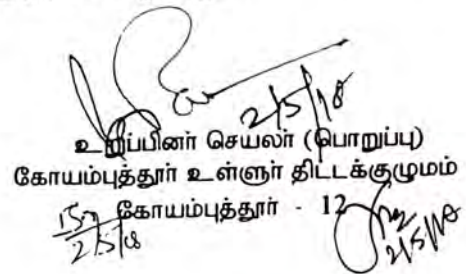 2/5/18
உறுப்பினர் செயலர் (பொறுப்பு)
கோயம்புத்தூர் உள்ளுர் திட்டக்குழுமம்
கோயம்புத்தூர் - 12
2/5/18
2/5/18